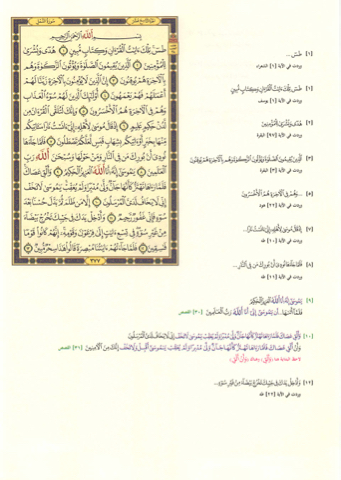 سورة النمل
الجزء التاسع عشر
بسم الله الرحمن الرحيم
طس تلك ءايت القرءان وكتاب مبين ١ هدى وبشرى
للمؤمنين ٢ الذين يقيمون الصلوة ويؤتون الزكوة وهم
بالأخرة هم يوقنون ٣ إن الذين لا يؤمنون بالأخرة زينا لهم
أعملهم فهم يعمهون ٤ أولئك الذين لهم سوء العذاب
وهم في الأخرة هم الأخسرون ٥ وإنك لتلقى القرءان من
لدن حكيم عليم ٦ إذ قال موسى لأهله إني ءانست نارا سئاتيكم
منها بخبر أو ءاتيكم بشهاب قبس لعلكم تصطلون ٧ فلما جاءها
نودي أن بورك من في النار ومن حولها وسبحن الله رب
العلمين ٨ يموسى إنه أنا الله العزيز الحكيم ٩ وألق عصاك
فلما رءاها تهتز كأنها جان ولى مدبرا ولم يعقب يموسى لا تخف
إني لا يخاف لدي المرسلون ١٠ إلا من ظلم ثم بدل حسنا بعد
سوء فإني غفور رحيم ١١ وأدخل يدك في جيبك تخرج بيضاء
من غير سوء في تسع ءايت إلى فرعون وقومه إنهم كانوا قوما
فسقين ١٢ فلما جاءتهم ءايتنا مبصرة قالوا هذا سحر مبين ١٣
٣٧٧
[١] طس ...
وردت في الآية [١] الشعراء
[١] طس تلك ءايت القرءان وكتاب مبين
وردت في الآية [١] يوسف
[٢] هدى وبشرى للمؤمنين
وردت في الآية [٩٧] البقرة
[٣] الذين يقيمون الصلوة ويؤتون الزكوة وهم بالأخرة هم يوقنون
[٥] ... وهم في الأخرة هم الأخسرون
وردت في الآية [٢٢] هود
[٧] إذ قال موسى لأهله إني ءانست نارا ...
وردت في الآية [١٠] طه
[٨] فلما جاءها نودي أن بورك من في النار ...
وردت في الآية [١١] طه
[٩] يموسى إنه أنا الله العزيز الحكيم
فلما أتىها ... أن يموسى إني أنا الله رب العلمين [٣٠] القصص
[١٠] وألق عصاك فلما رءاها تهتز كأنها جان ولى مدبرا ولم يعقب يموسى لا تخف إني لا يخاف لدي المرسلون
وأن ألق عصاك فلما رءاها تهتز كأنها جان ولى مدبرا ولم يعقب يموسى أقبل ولا تخف إنك من الأمنين [٣١] القصص
[١٢] وأدخل يدك في جيبك تخرج بيضاء من غير سوء ...
وردت في الآية [٢٢] طه